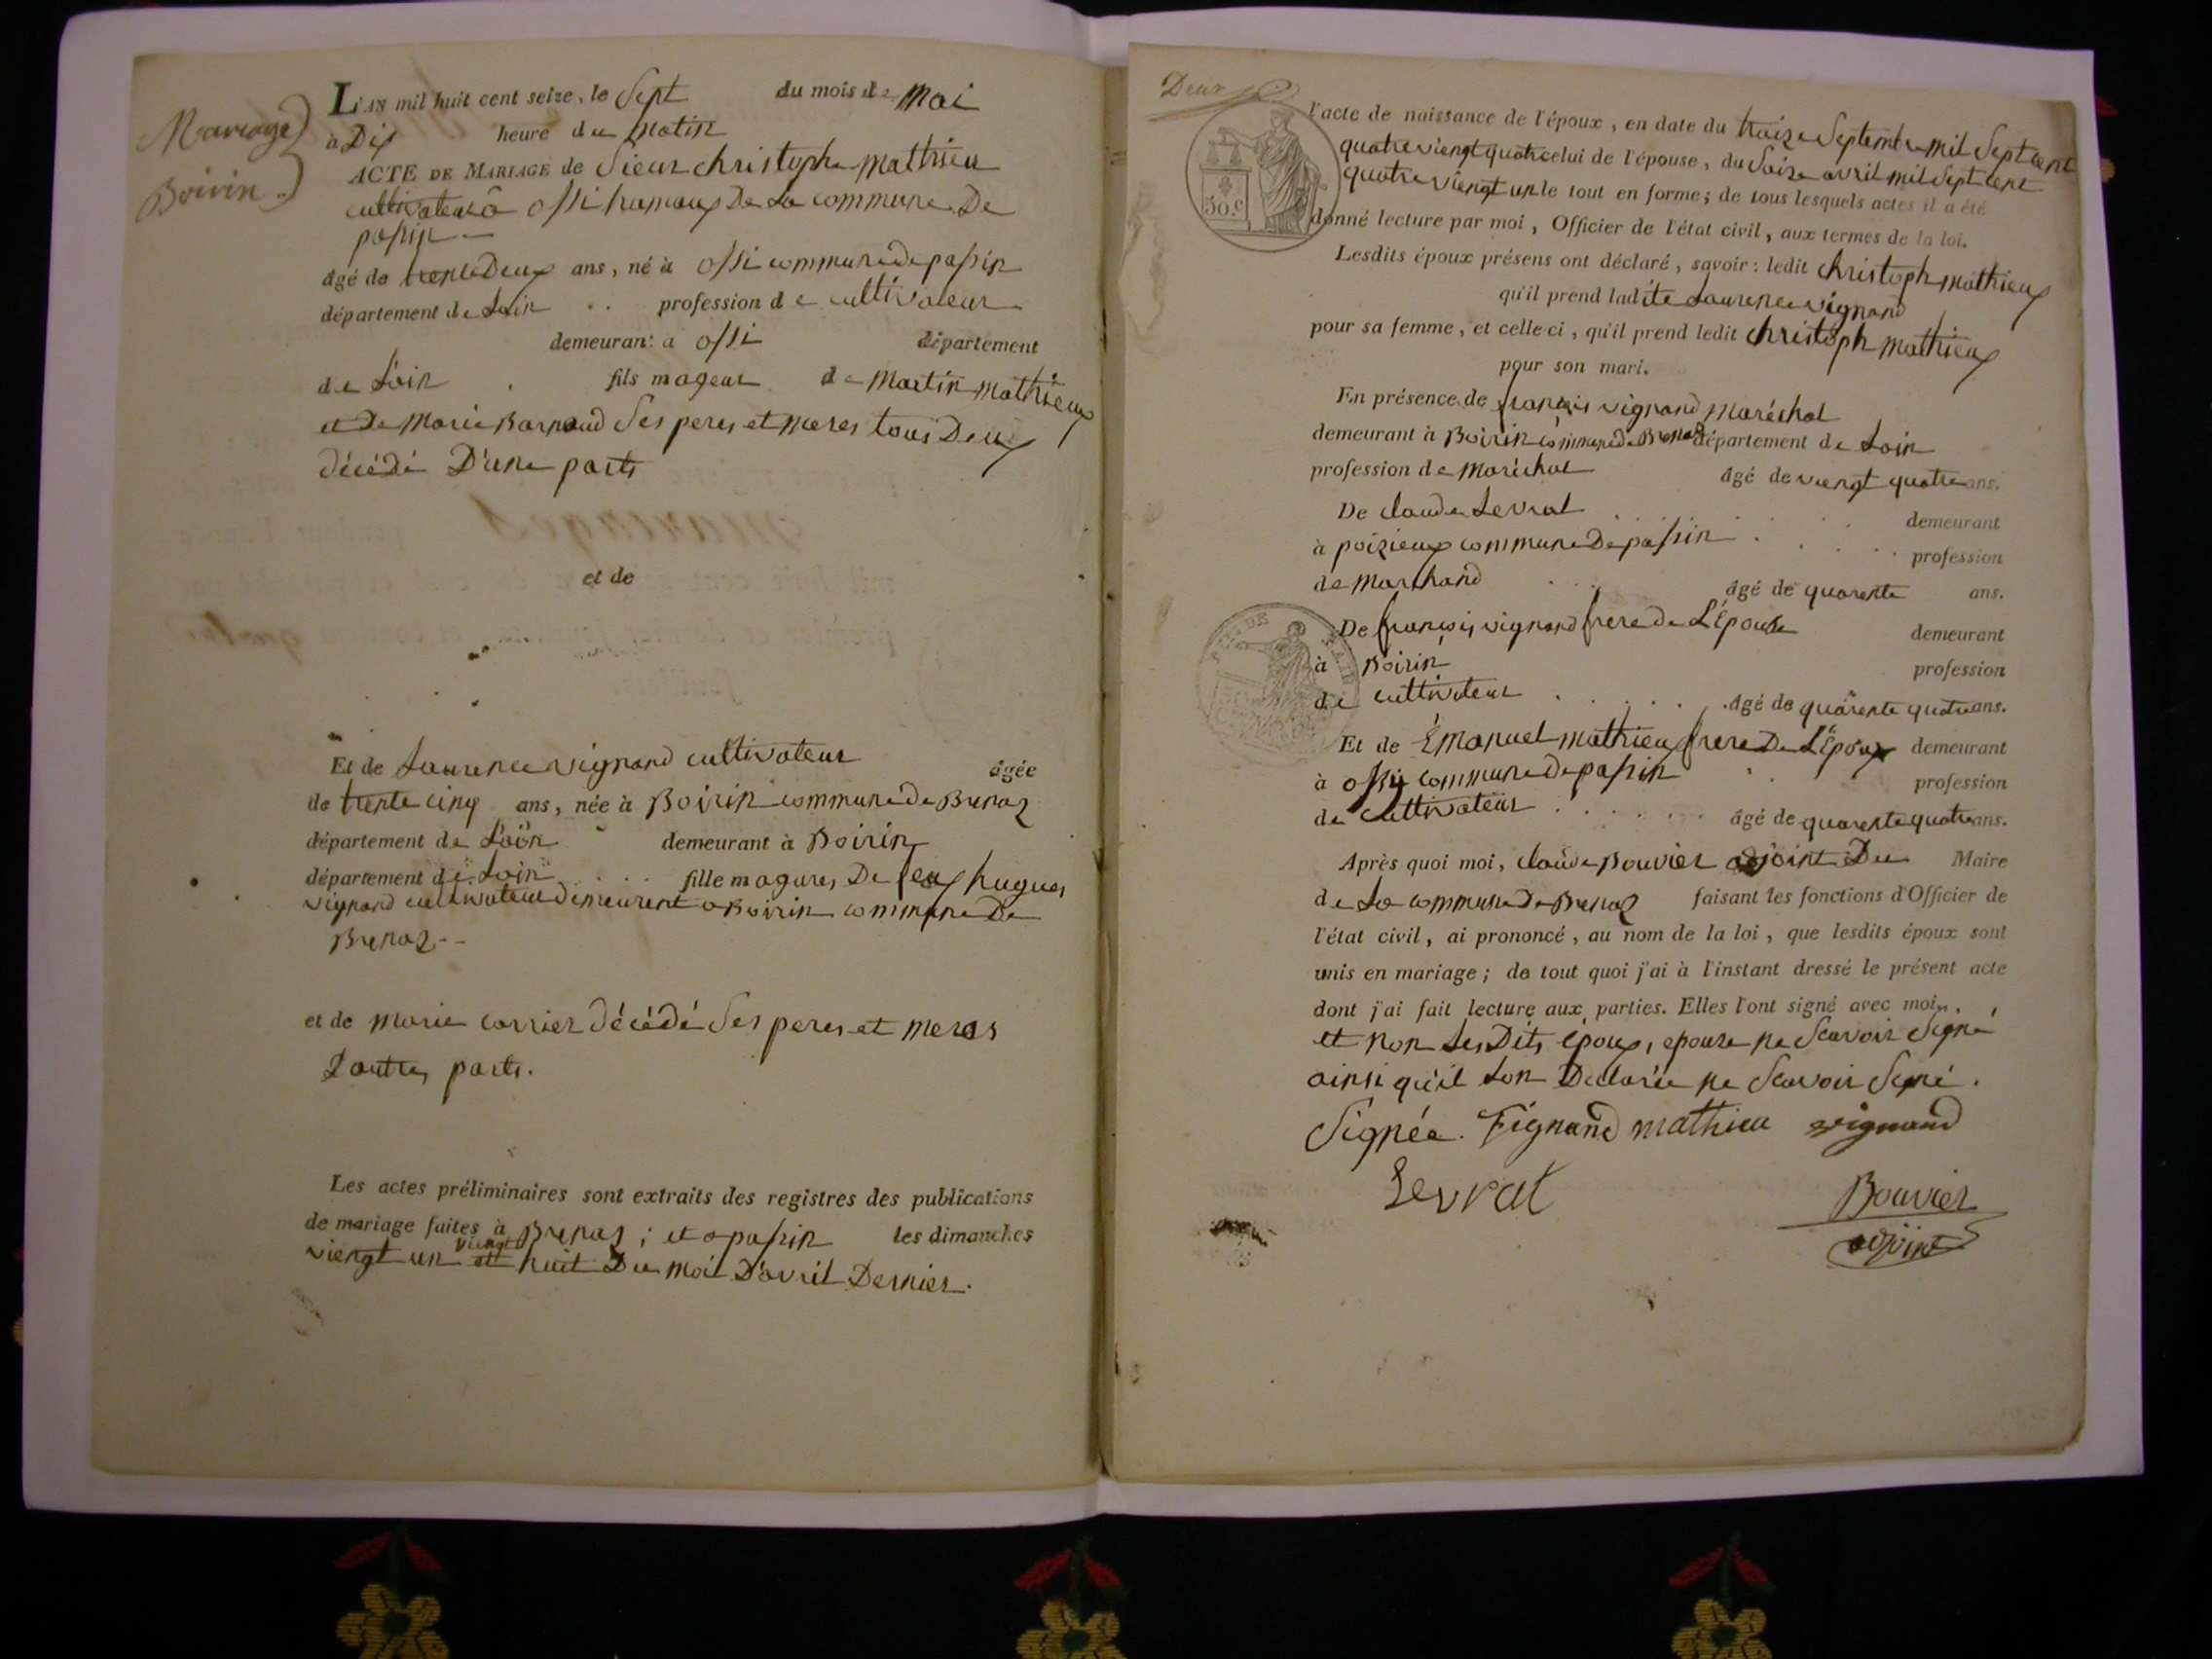 Mariage
Boirin
L'AN mil huit cent seize, le Sept du mois de Mai
à Dix heure du Matin
ACTE DE MARIAGE de Sieur christophe Mathieu
cultivateur à ossi hamaux De La commune De
passin
âgé de trente Deux ans, né à ossi commune de passin
département de Lain profession de cultivateur
demeurant à ossi département
de L'ain fils mageur de Martin Mathieux
et De Marie Barnaud Ses peres et meres tous Deux
décédé D'une parts
et de
Et de Laurence vignand cultivateur âgée
de trente cinq ans, née à Boirin commune de Brenaz
département de L'aïn demeurant à Boirin
département de Lain fille magures De feux hugues
vignand cultivateur demeurent a Boirin commune De
Brenaz--
et de Marie corrier décédé Ses peres et meres
D'autres parts.
Les actes préliminaires sont extraits des registres des publications
de mariage faites à Brenas ; et a passin les dimanches
viengt
viengt un et huit Du moi D'avril Dernier.
Deux
50.c
l'acte de naissance de l'époux, en date du traize Septembre Mil Sept cent
quatre viengt quatre celui de l'épouse, du Saize avril mil Sept cent
quatre viengt un le tout en forme; de tous lesquels actes il a été
donné lecture par moi, Officier de l'état civil, aux termes de la loi.
Lesdits époux présens ont déclaré, savoir: ledit christoph mathieux
qu'il prend ladite Laurence vignand
pour sa femme, et celle-ci, qu'il prend ledit christoph mathieux
pour son mari.
En présence de françois vignand maréchal
demeurant à Boirin commune de Brenaz département de Lain
profession de Maréchal âgé de viengt quatre ans.
De claude Levrat demeurant
à poizieux commune De passin profession
de Marchand âgé de quarente ans.
De françois vignand frere de L'Épouse demeurant
à Boirin profession
de cultivateur âgé de quarente quatre ans.
Et de Émanuel mathieux frere De L'Époux demeurant
à ossy commune de passin profession
de cultivateur âgé de quarente quatre ans.
Après quoi moi, claude Bouvier adjoint Du Maire
de La commune De Brenaz faisant les fonctions d'Officier de
l'état civil, ai prononcé, au nom de la loi, que lesdits époux sont
unis en mariage; de tout quoi j'ai à l'instant dressé le présent acte
dont j'ai fait lecture aux parties. Elles l'ont signé avec moi.
et non Les Dits époux, epouse ne Scavoir Signé
ainsi qu'il Lon Declarée ne Scavoir Signé.
Signée. Vignand mathieu vignand
Levrat Bouvier
adjoint